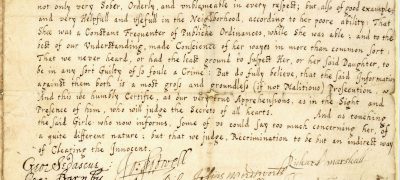 not only very Sober, Orderly, and unblameable in every respect; but also of good example,
and very Helpfull and usefull in the Neighborhood, according to her poore ability: That
She was a Constant Frequenter of Publicke Ordinances, while She was able; and to the
best of our Understanding, made Conscience of her wayes in more than common sort:
That we never heard, or had the least ground to suspect Her, or her said Daughter, to
be in any sort Guilty of so foule a Crime; But do fully believe, that the said Information
against them both is a most gross and groundless (if not Malitious) Prosecution,
And this we humbly Certifie, as our very true Apprehensions, as in the Sight and
Presence of him, who will judge the Secrets of all hearts. And as touching
the said Girle who now informs, Some of us could say too much concerning her, of
a quite different nature; but that we judge, Recrimination to be but an indirect way
of Clearing the Innocent.
Richard Marshall